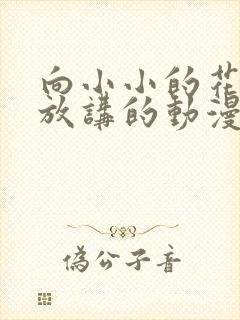 向小小的花
放講的動漫
偽公子音